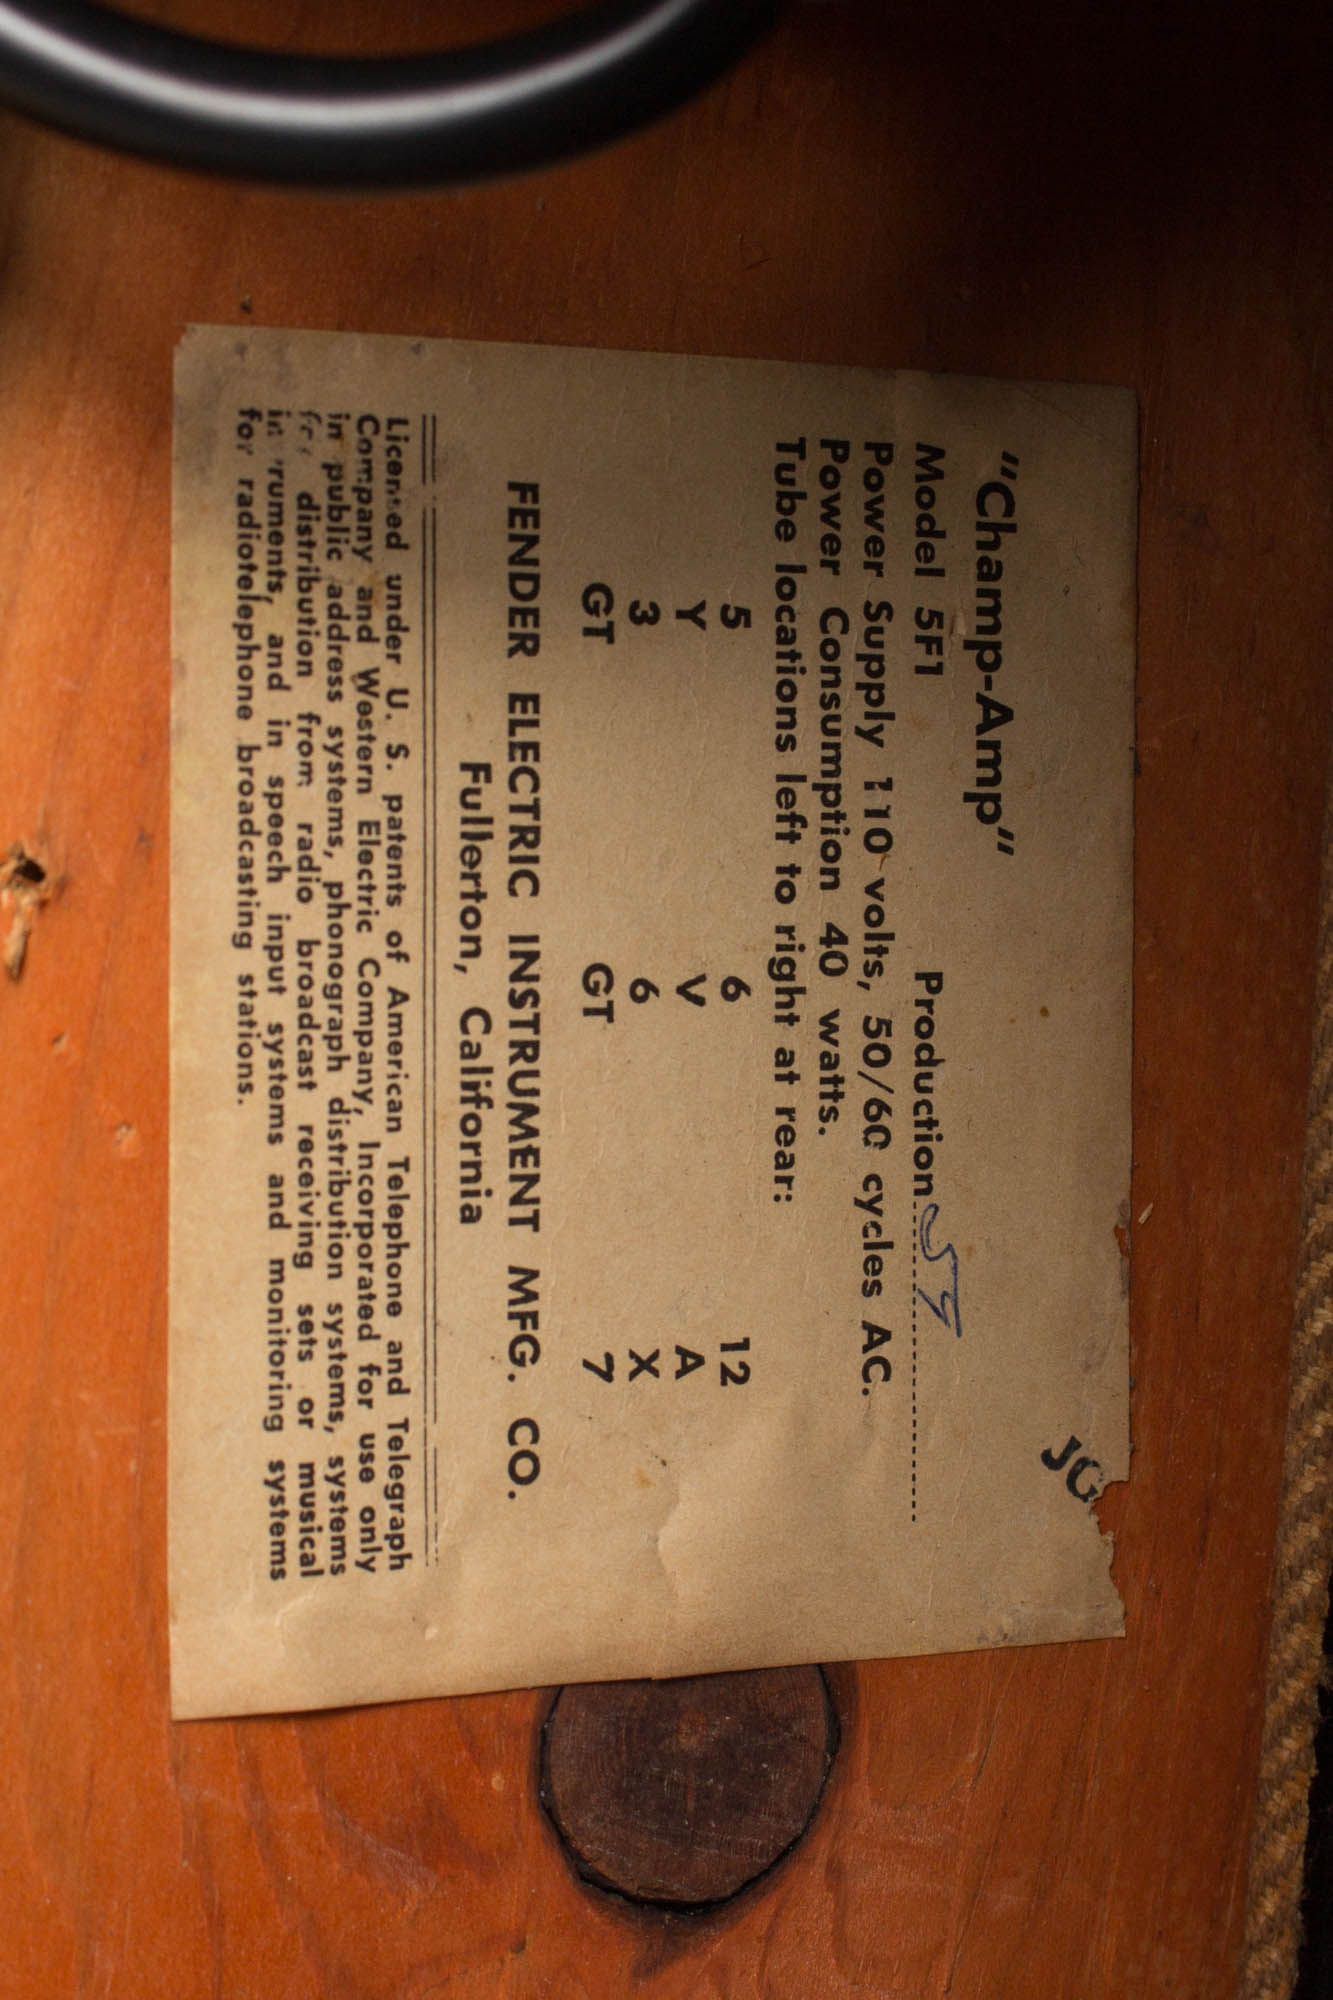 JG
"Champ-Amp"
Model 5F1 Production
Power Supply 110 volts, 50/60 cycles AC.
Power Consumption 40 watts.
Tube locations left to right at rear:
5 6 12
Y V A
3 6 X
GT GT 7
FENDER ELECTRIC INSTRUMENT MFG. CO.
Fullerton, California
Licensed under U. S. patents of American Telephone and Telegraph
Company and Western Electric Company, Incorporated for use only
in public address systems, phonograph distribution systems, systems
for distribution from radio broadcast receiving sets or musical
instruments, and in speech input systems and monitoring systems
for radiotelephone broadcasting stations.